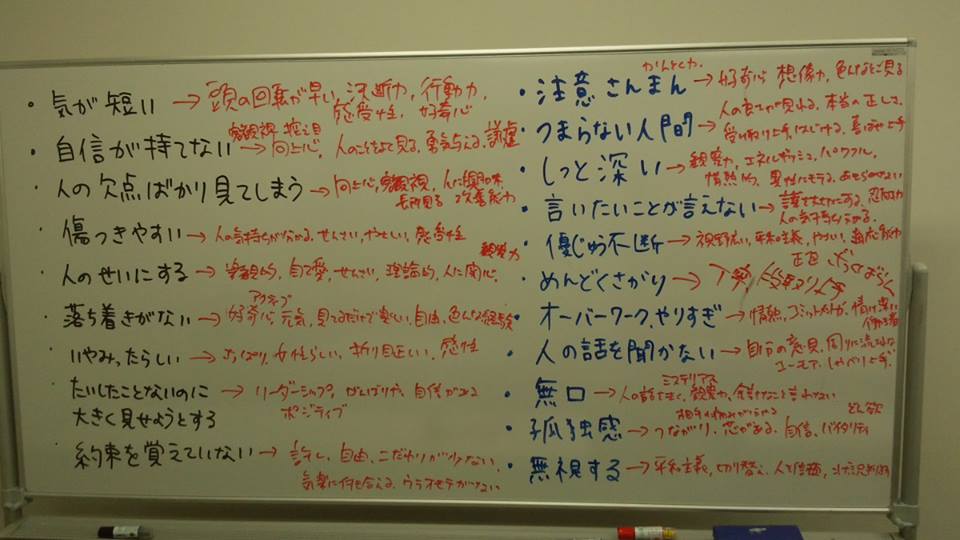 ・気が短い → 頭の回転が早い、決断力、行動力、
感受性、好奇心
・自信が持てない → 向上心、人のことをよく見る、勇気与える、謙虚
・人の欠点ばかり見てしまう → 向上心、客観視、人に興味
長所見る 改善能力
・傷つきやすい → 人の気持ちが分かる、せんさい、やさしい、感受性
観察力
・人のせいにする → 楽観的、自己愛、せんさい、理論的、人に関心
アクティブ
・落ち着きがない → 好奇心、元気、見てるだけで楽しい、自由、色んな経験
・いやみったらしい → 女性らしい、折り目正しい、感性
・たいしたことないのに → リーダーシップ、がんばりや、自信がある
大きく見せようとする ポジティブ
・約束を覚えていない → 許し、自由、こだわりが少ない、
気楽に付き合える、ウラオモテがない
・注意さんまん → 好奇心 想像力、色んなとこ見る
・つまらない人間 → 人の良さが見れる、本当の正しさ、
・しっと深い → 観察力、エネルギッシュ、パワフル、
情熱的、男性にモテる、あきらめない
・言いたいことが言えない → 忍耐力
人の気持ち分かる、
・優じゅう不断 → 視野広い、平和主義、やさしい、適応能力
・めんどくさがり →
・オーバーワーク、やりすぎ → 情熱、情け深い
働き者
・人の話を聞かない → 自分の意見、周りに流されない
ユーモア、しゃべり上手、
ミステリアス
・無口 → 人の話を良く聞く、観察力、余計なこと言わない
・孤独感 → つながり、芯がある、自信、バイタリティ
・無視する → 平和主義、切り替え、